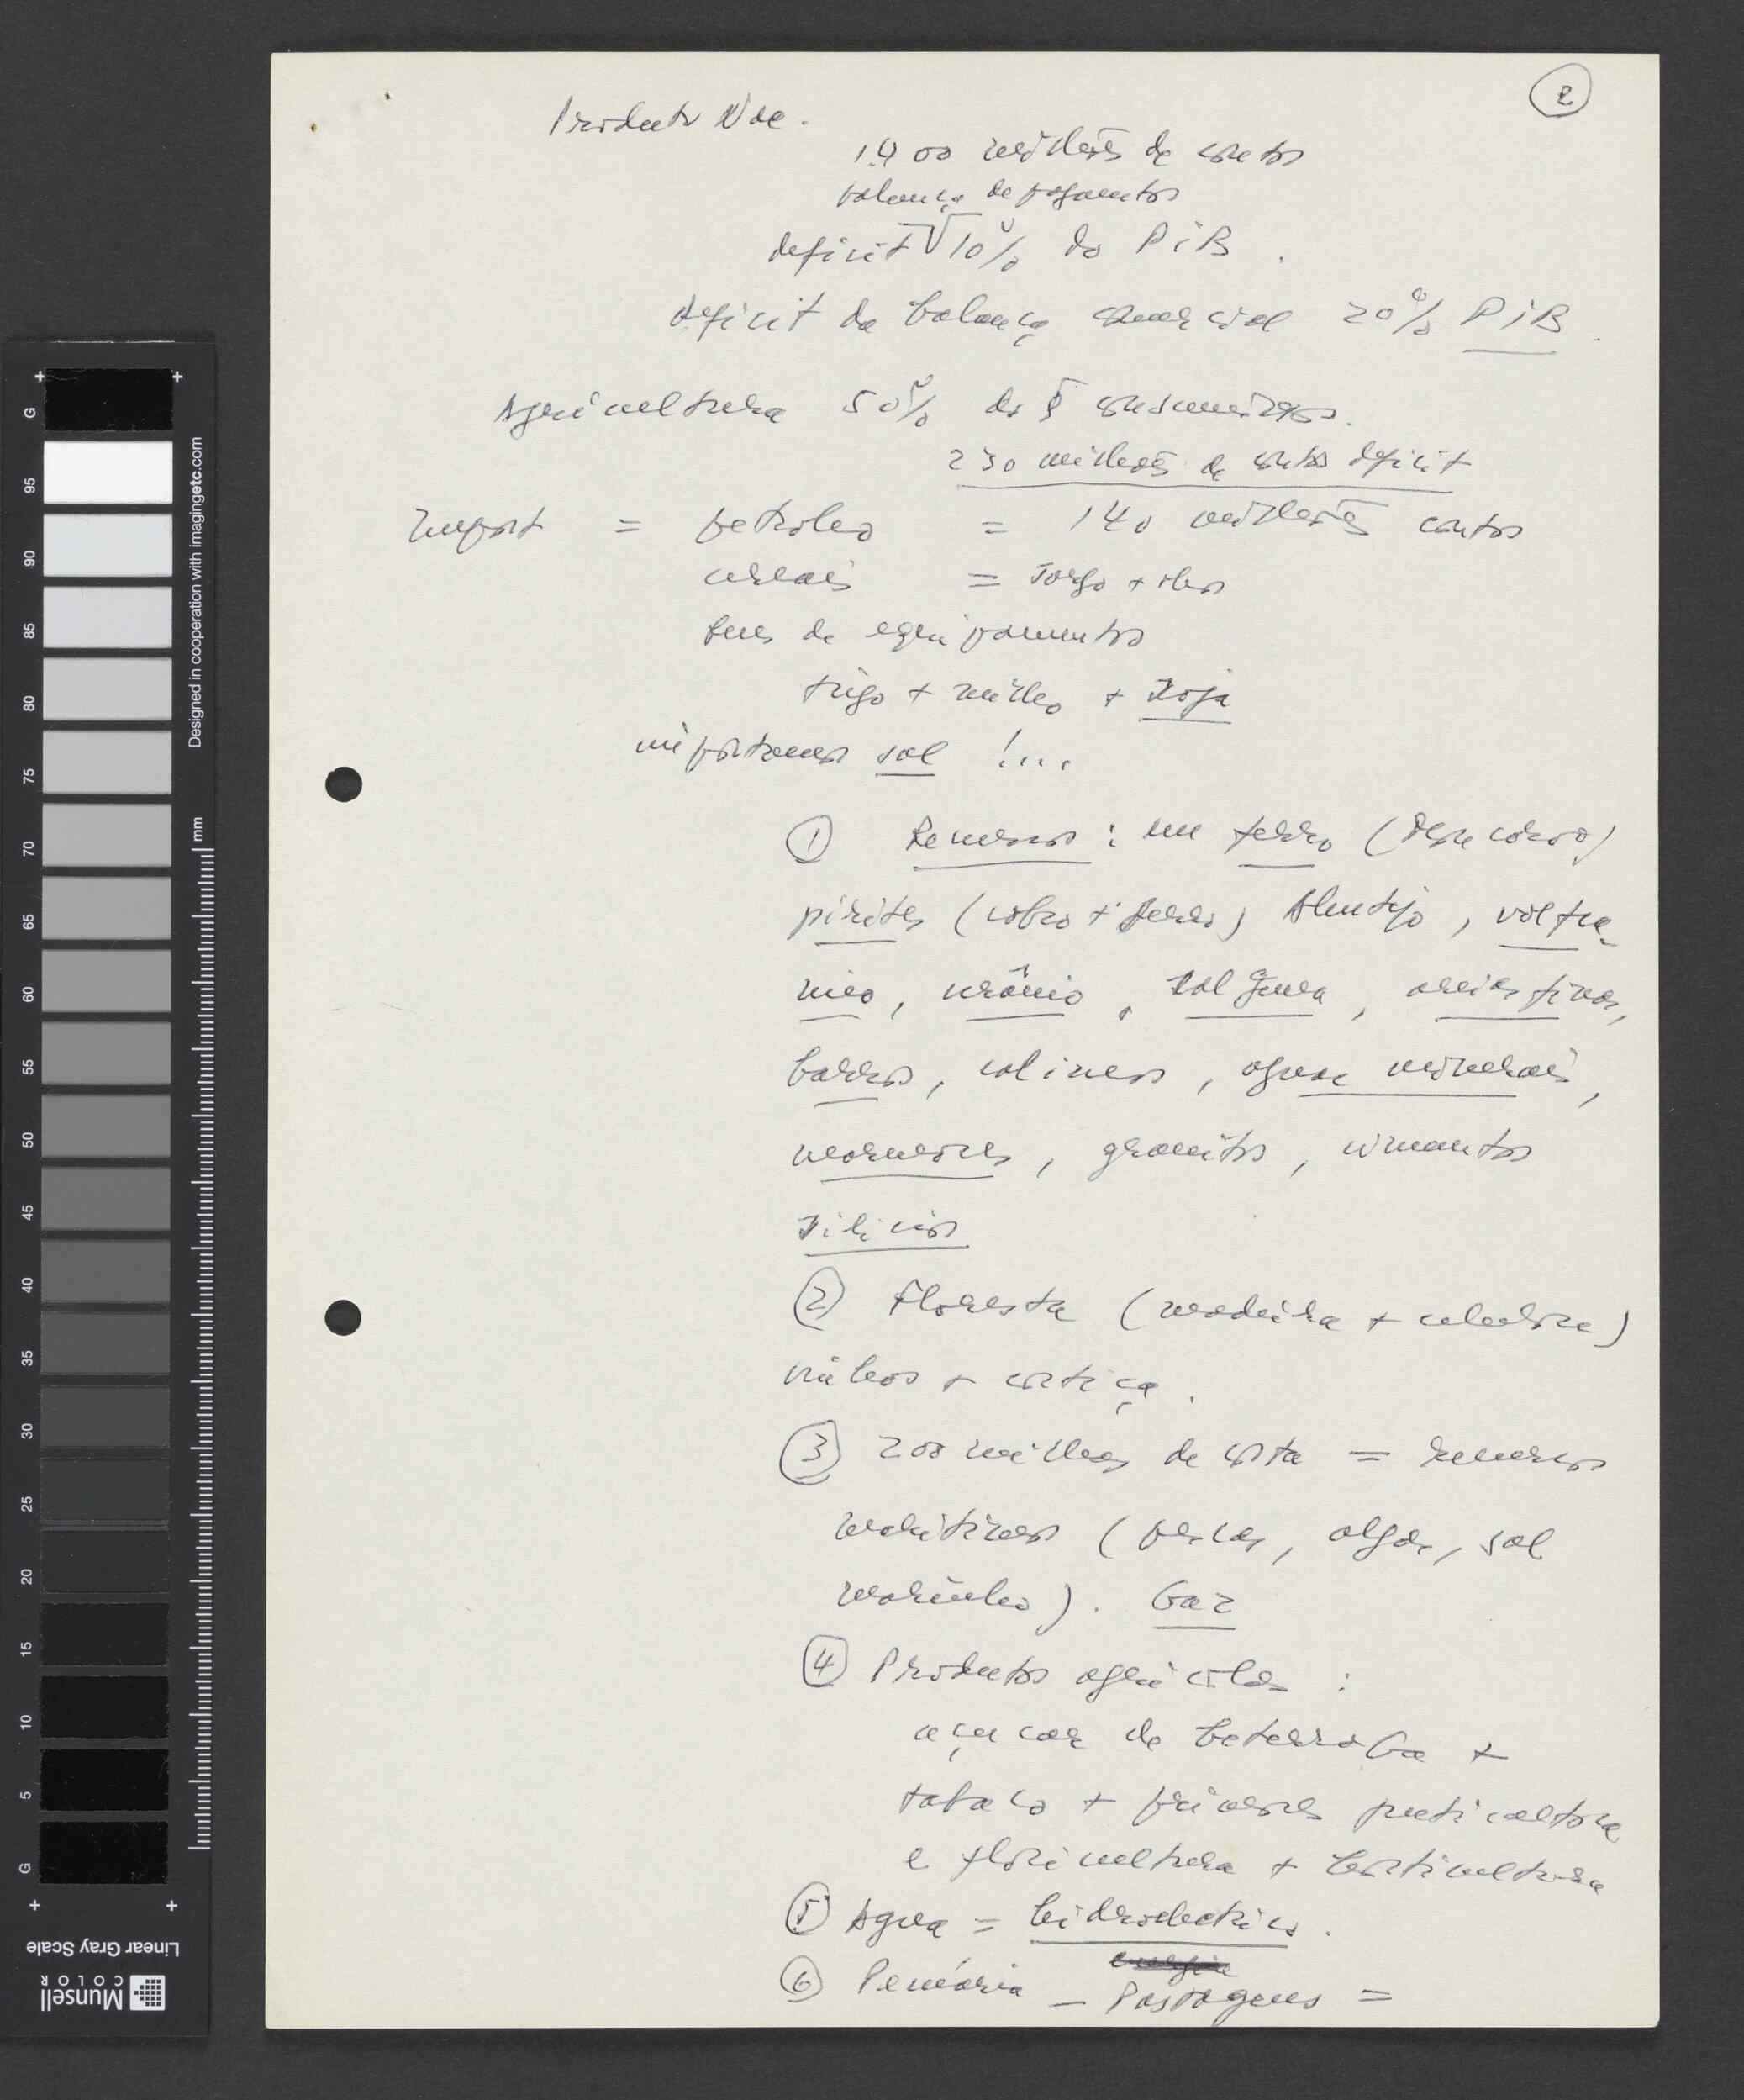 2
Produto Nac.
1400 milhões de contos
balança de pagamentos
deficit √ 10% do PiB.
deficit da balança comercial 20% PiB.
Agricultura 50% do q consumimos.
230 milhões de contos deficit
Import = petroleo = 140 milhões contos
cereais = sorgo + 
bens de equipamentos
trigo + milho + soja
importamos sal !...
① Recursos: em ferro (Moncorvo)
pirites (cobre + ferro) Alentejo, volfra-
mio, urânio, sal gema, areias finas,
barros, caolinos, aguas minerais,
marmores, granitos, cimentos
Silicios
② Floresta (madeira + celulose)
vinhos + cortiça.
③ 200 milhas de costa = recursos
maritimos (pescas, algas, sal
marinho). Gaz
④ Produtos agricolas :
açucar de beterraba +
tabaco + primores fruticultura
e floricultura + horticultura
⑤ Agua = hidroelectrica.
energia
⑥ Pecuária — Pastagens =
G 95 90 85 80 75 70 65 60 55 50 45 40 35 30 25 20 15 10 5 G
mm
Designed in cooperation with imagingetc.com
Linear Gray Scale
Munsell
COLOR